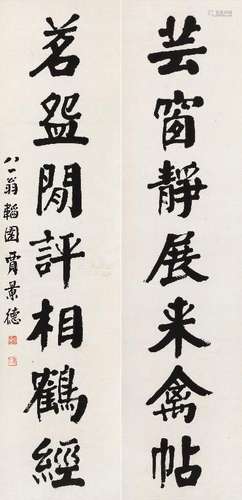 芸窗靜展来禽帖
茗盌閒評相鶴經
八一翁韜園賈景德